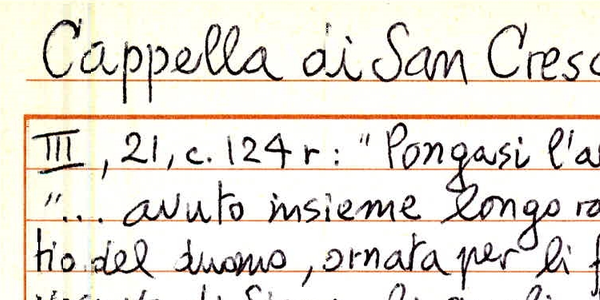 Cappella di San Cresc
III, 21, c. 124 r: "Pongasi l'a
"... avuto insieme longo ra
tio del duomo, ornata per li f